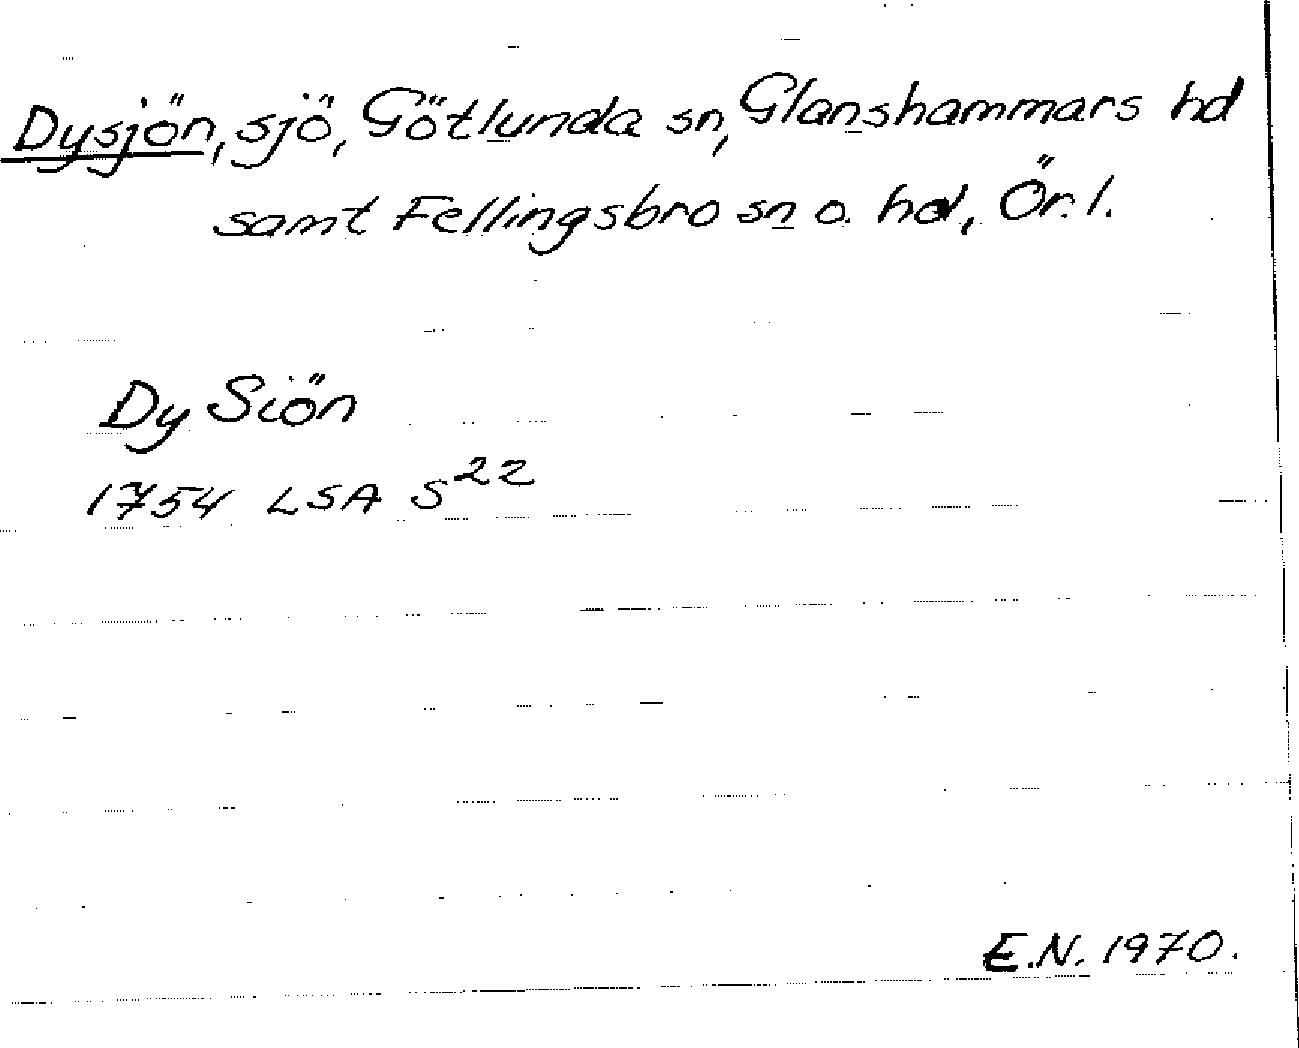 Dysjön, sjö, Götlunda sn, Glanshammars hd
samt Fellingsbro sn o. hd, Ör. l.
Dy Siön
1754 LSA S²²
E.N. 1970.